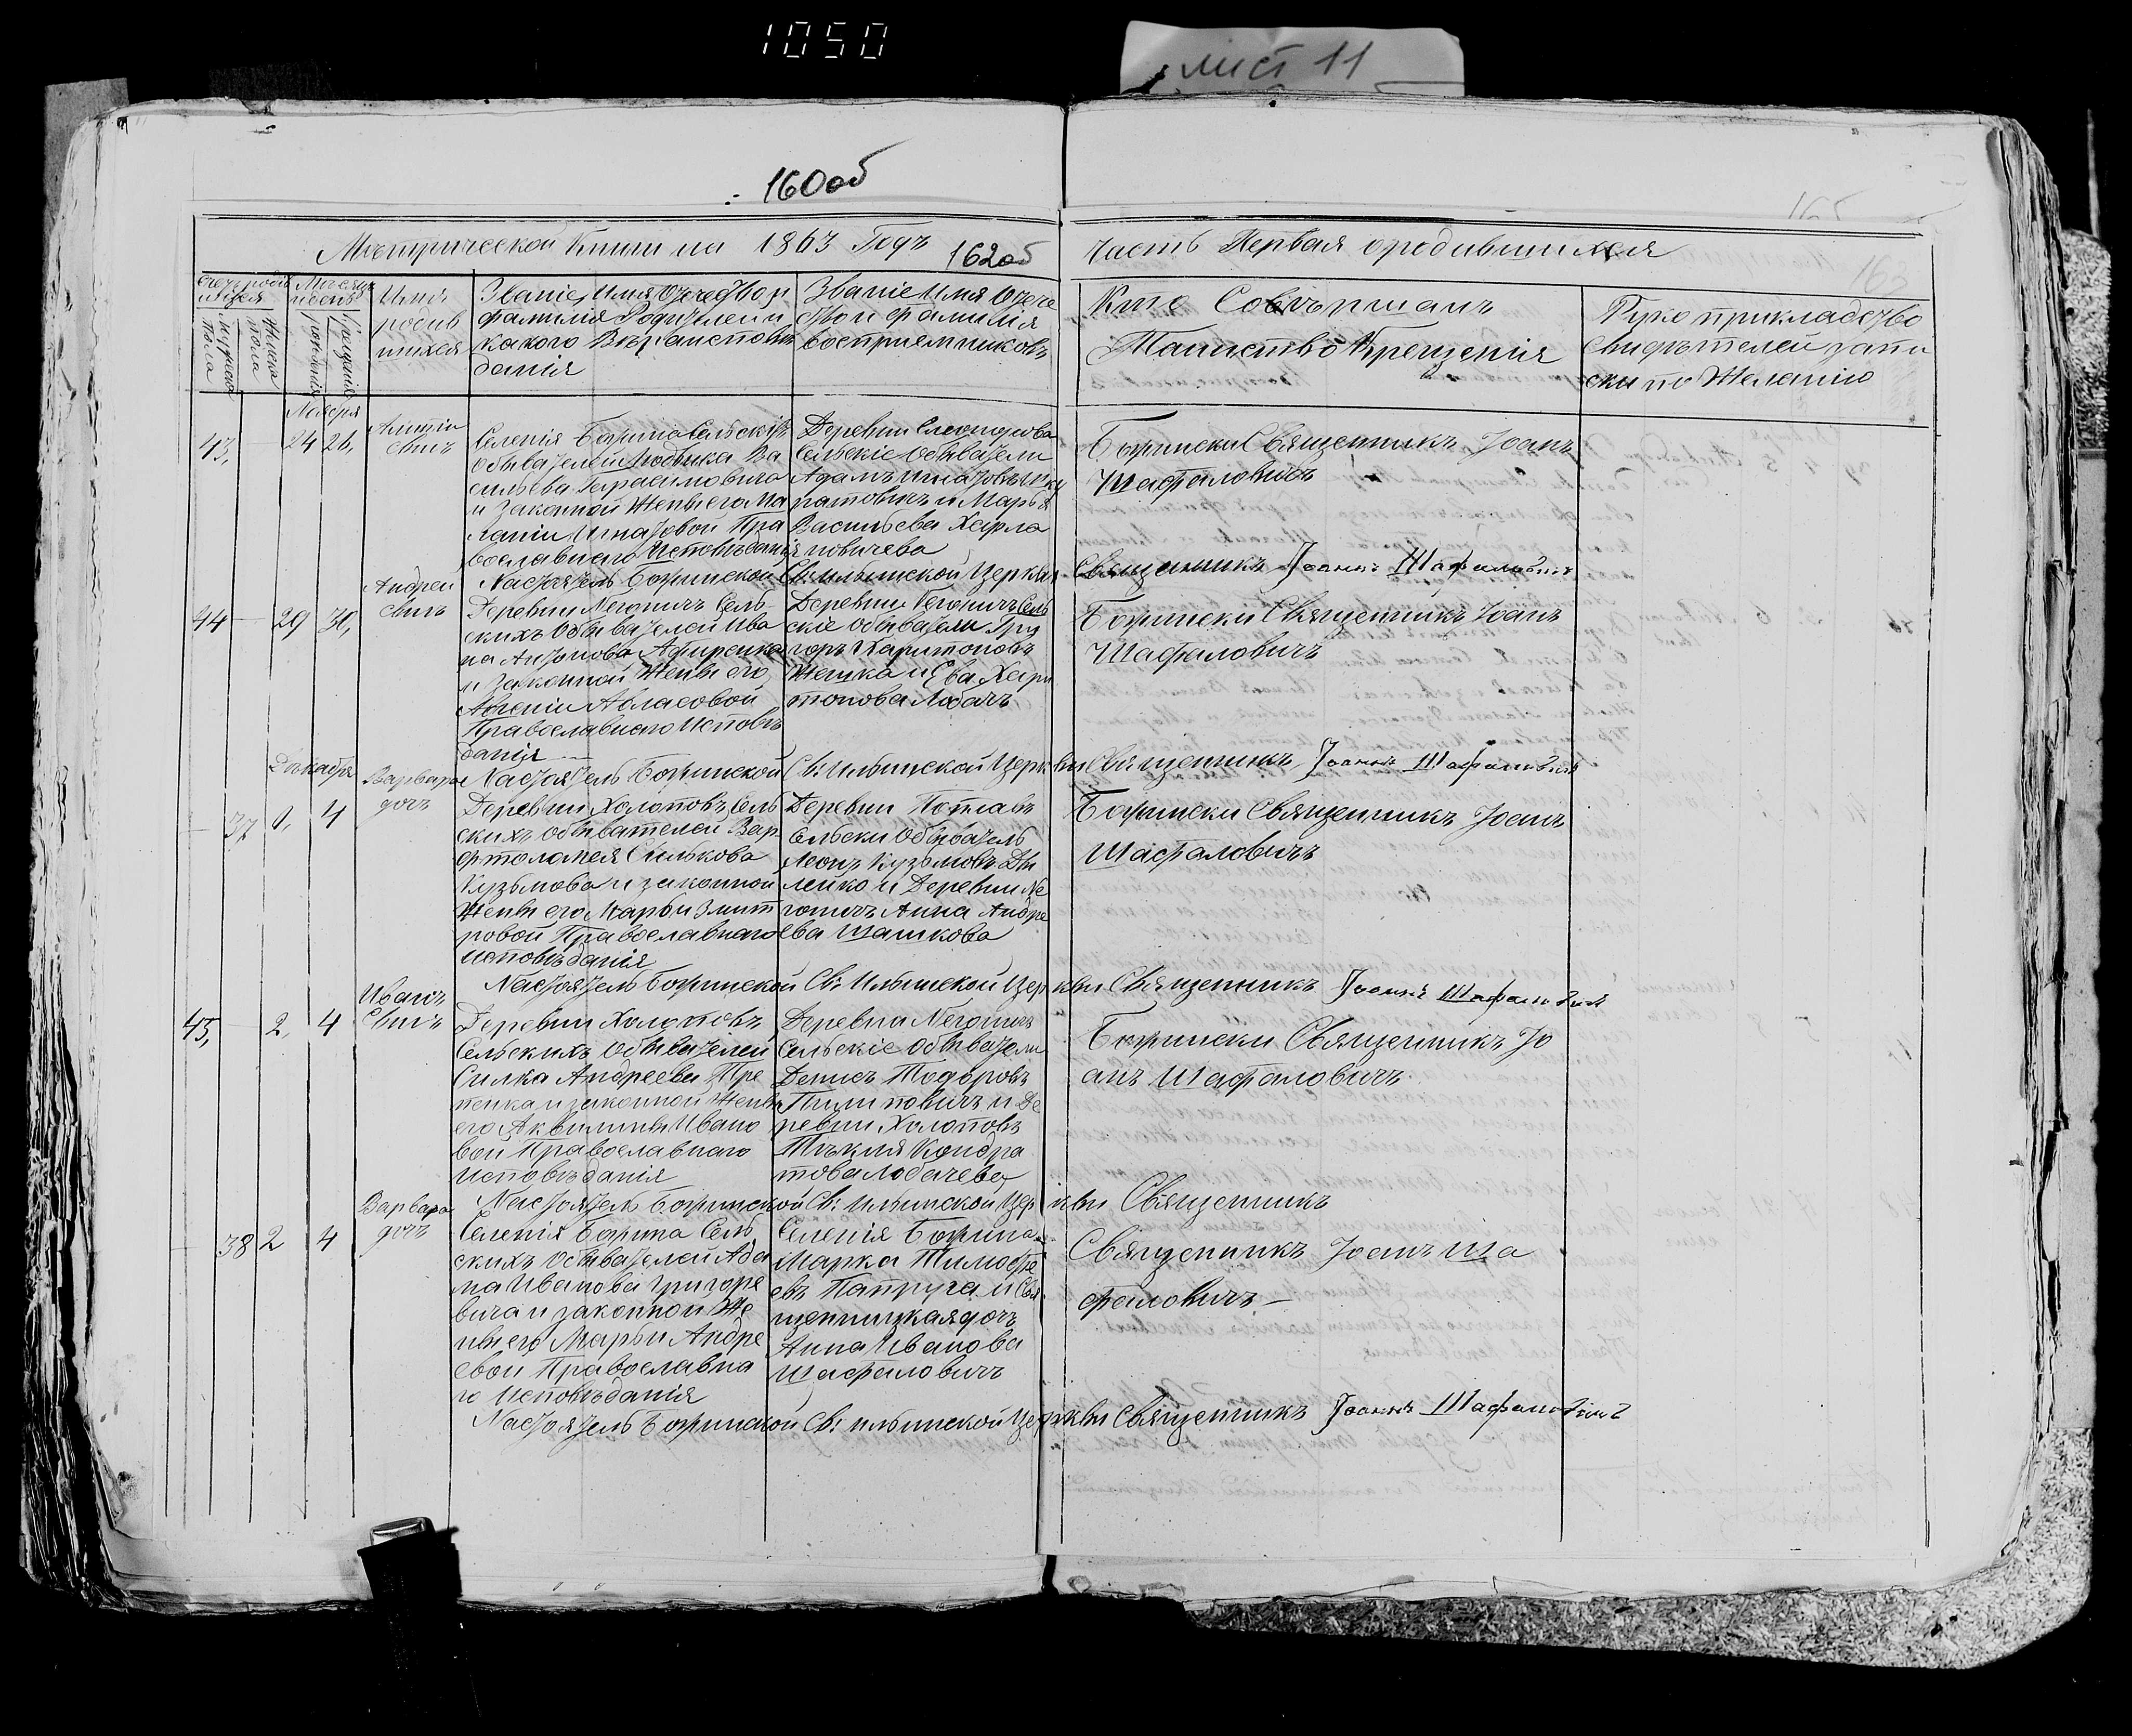 1050
лист 11
160об
Метрической Книги на 1863 Годъ
162об
Часть Первая о родившихся
Счетъ родив
шихся
Мужеска
пола
Женска
пола
Месяцъ
рожденія
крещенія
Имя
родив
шихся
Званіе, Имя, Отчество и
фамилія Родителей и
какого Вѣроисповѣ
данія
Званіе Имя Отче
ство и фамилія
воспріемниковъ
Кто Совѣршалъ
Таинство Крещенія
Рукоприкладство
свидѣтелей запи
ски по Желанію
Ноября
43, 24 26,
сынъ
Селенія Бофина Сельскихъ
обывателей Людвика Ва
сильева Герасимовича
и законной Жены его Ма
ланіи Игнатовой Пра
вославнаго Исповѣданія
Сельскіе обыватели
Адамъ Игнатовъ Ку
ратовичъ и Марья
Васильева Харла
новичева
Бофински Священникъ Іоанъ
Шафаловичъ
Настоятель Бофинской Св: Ильинской Церкви Священникъ Іоаннъ Шафаловичъ
44 — 29 30,
Андрей
сынъ
Деревни Негоничъ Сель
скихъ Обывателей Ива
на Антонова
и Законной Жены его
Православнаго Исповѣ
данія
Деревни Негоничъ Сель
скіе обыватели Гри
горъ Харитоновъ
и Ева Хари
тонова Лобачъ
Бофински Священникъ Іоанъ
Шафаловичъ
Настоятель Бофинской Св: Ильинской Церкви Священникъ Іоаннъ Шафаловичъ
Декабря
— 37 1, 4
Варвара
дочь
Деревни Холоповъ Сель
скихъ обывателей Вар
фоломея Силькова
Кузьмова и законной
Жены его Марьи Змит
ровой Православнаго
исповѣданія
Деревни
Сельски Обыватель
Леонъ Кузьмовъ Ди
лейко и Деревни Не
гоничъ Анна Андре
ева Шашкова
Бофински Священникъ Іоанъ
Шафаловичъ
Настоятель Бофинской Св: Ильинской Церкви Священникъ Іоаннъ Шафаловичъ
45, — 2, 4
Иванъ
Сынъ
Деревни Холоповъ
Сельскихъ Обывателей
Силка Андреева Тре
пенка и законной Жены
его Аквилины Ивано
вой Православнаго
исповѣданія
Деревна Негоничъ
Сельскіе обыватели
Денисъ Тодоровъ
Пилиповичъ и Де
ревни Холоповъ
Тѣкля Кондра
това Лобачева
Бофински Священникъ Іо
анъ Шафаловичъ
Настоятель Бофинской Св: Ильинской Церкви Священникъ
— 38 2 4
Варвара
дочь
Селенія Бофина Сель
скихъ Обывателей Ада
ма Иванова Григоре
вича и законной Же
ны его Марьи Андре
евой Православна
го Исповѣданія
Селенія Бофина
Марка Тимофе
евъ Папруга и Свя
щенницкая дочь
Анна Иванова
Шафаловичъ
Священникъ Іоанъ Ша
фаловичъ —
Настоятель Бофинской Св: Ильинской Церкви Священникъ Іоаннъ Шафаловичъ